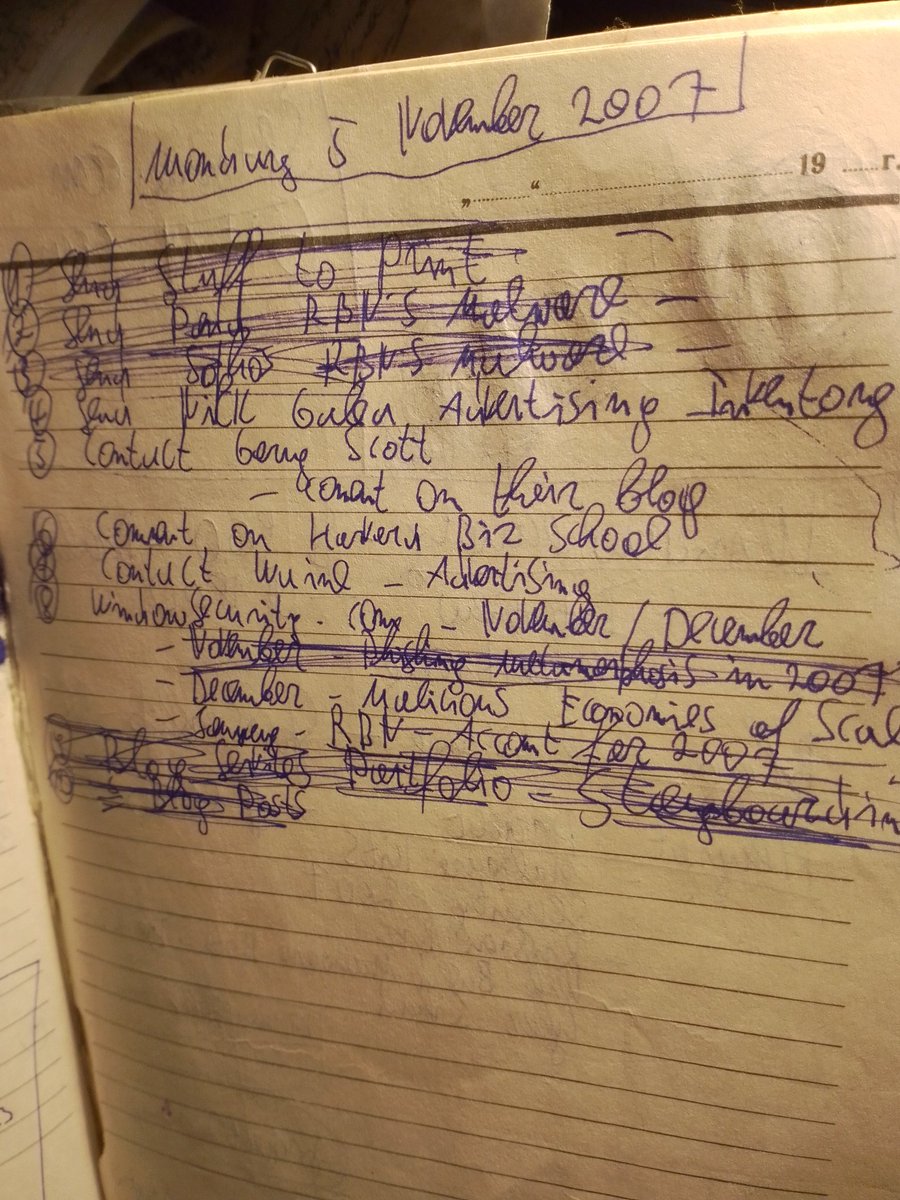 Monday 5 November 2007
„ “ 19 г.
① Send Stuff to Print —
② Send Panda RBN's Malware —
③ Send Sophos RBN's Malware —
④ Send Nick Advertising Inventory
⑤ Contact Scott
— Comment on their Blog
⑥ Comment on Harvard Biz School
⑦ Contact — Advertising
⑧ WindowSecurity.com — November / December
— November — Phishing Metamorphosis in 2007
— December — Malicious Economies of Scal
— RBN — Account for 2007
Blog Services Portfolio — Storyboardin
Blog Posts